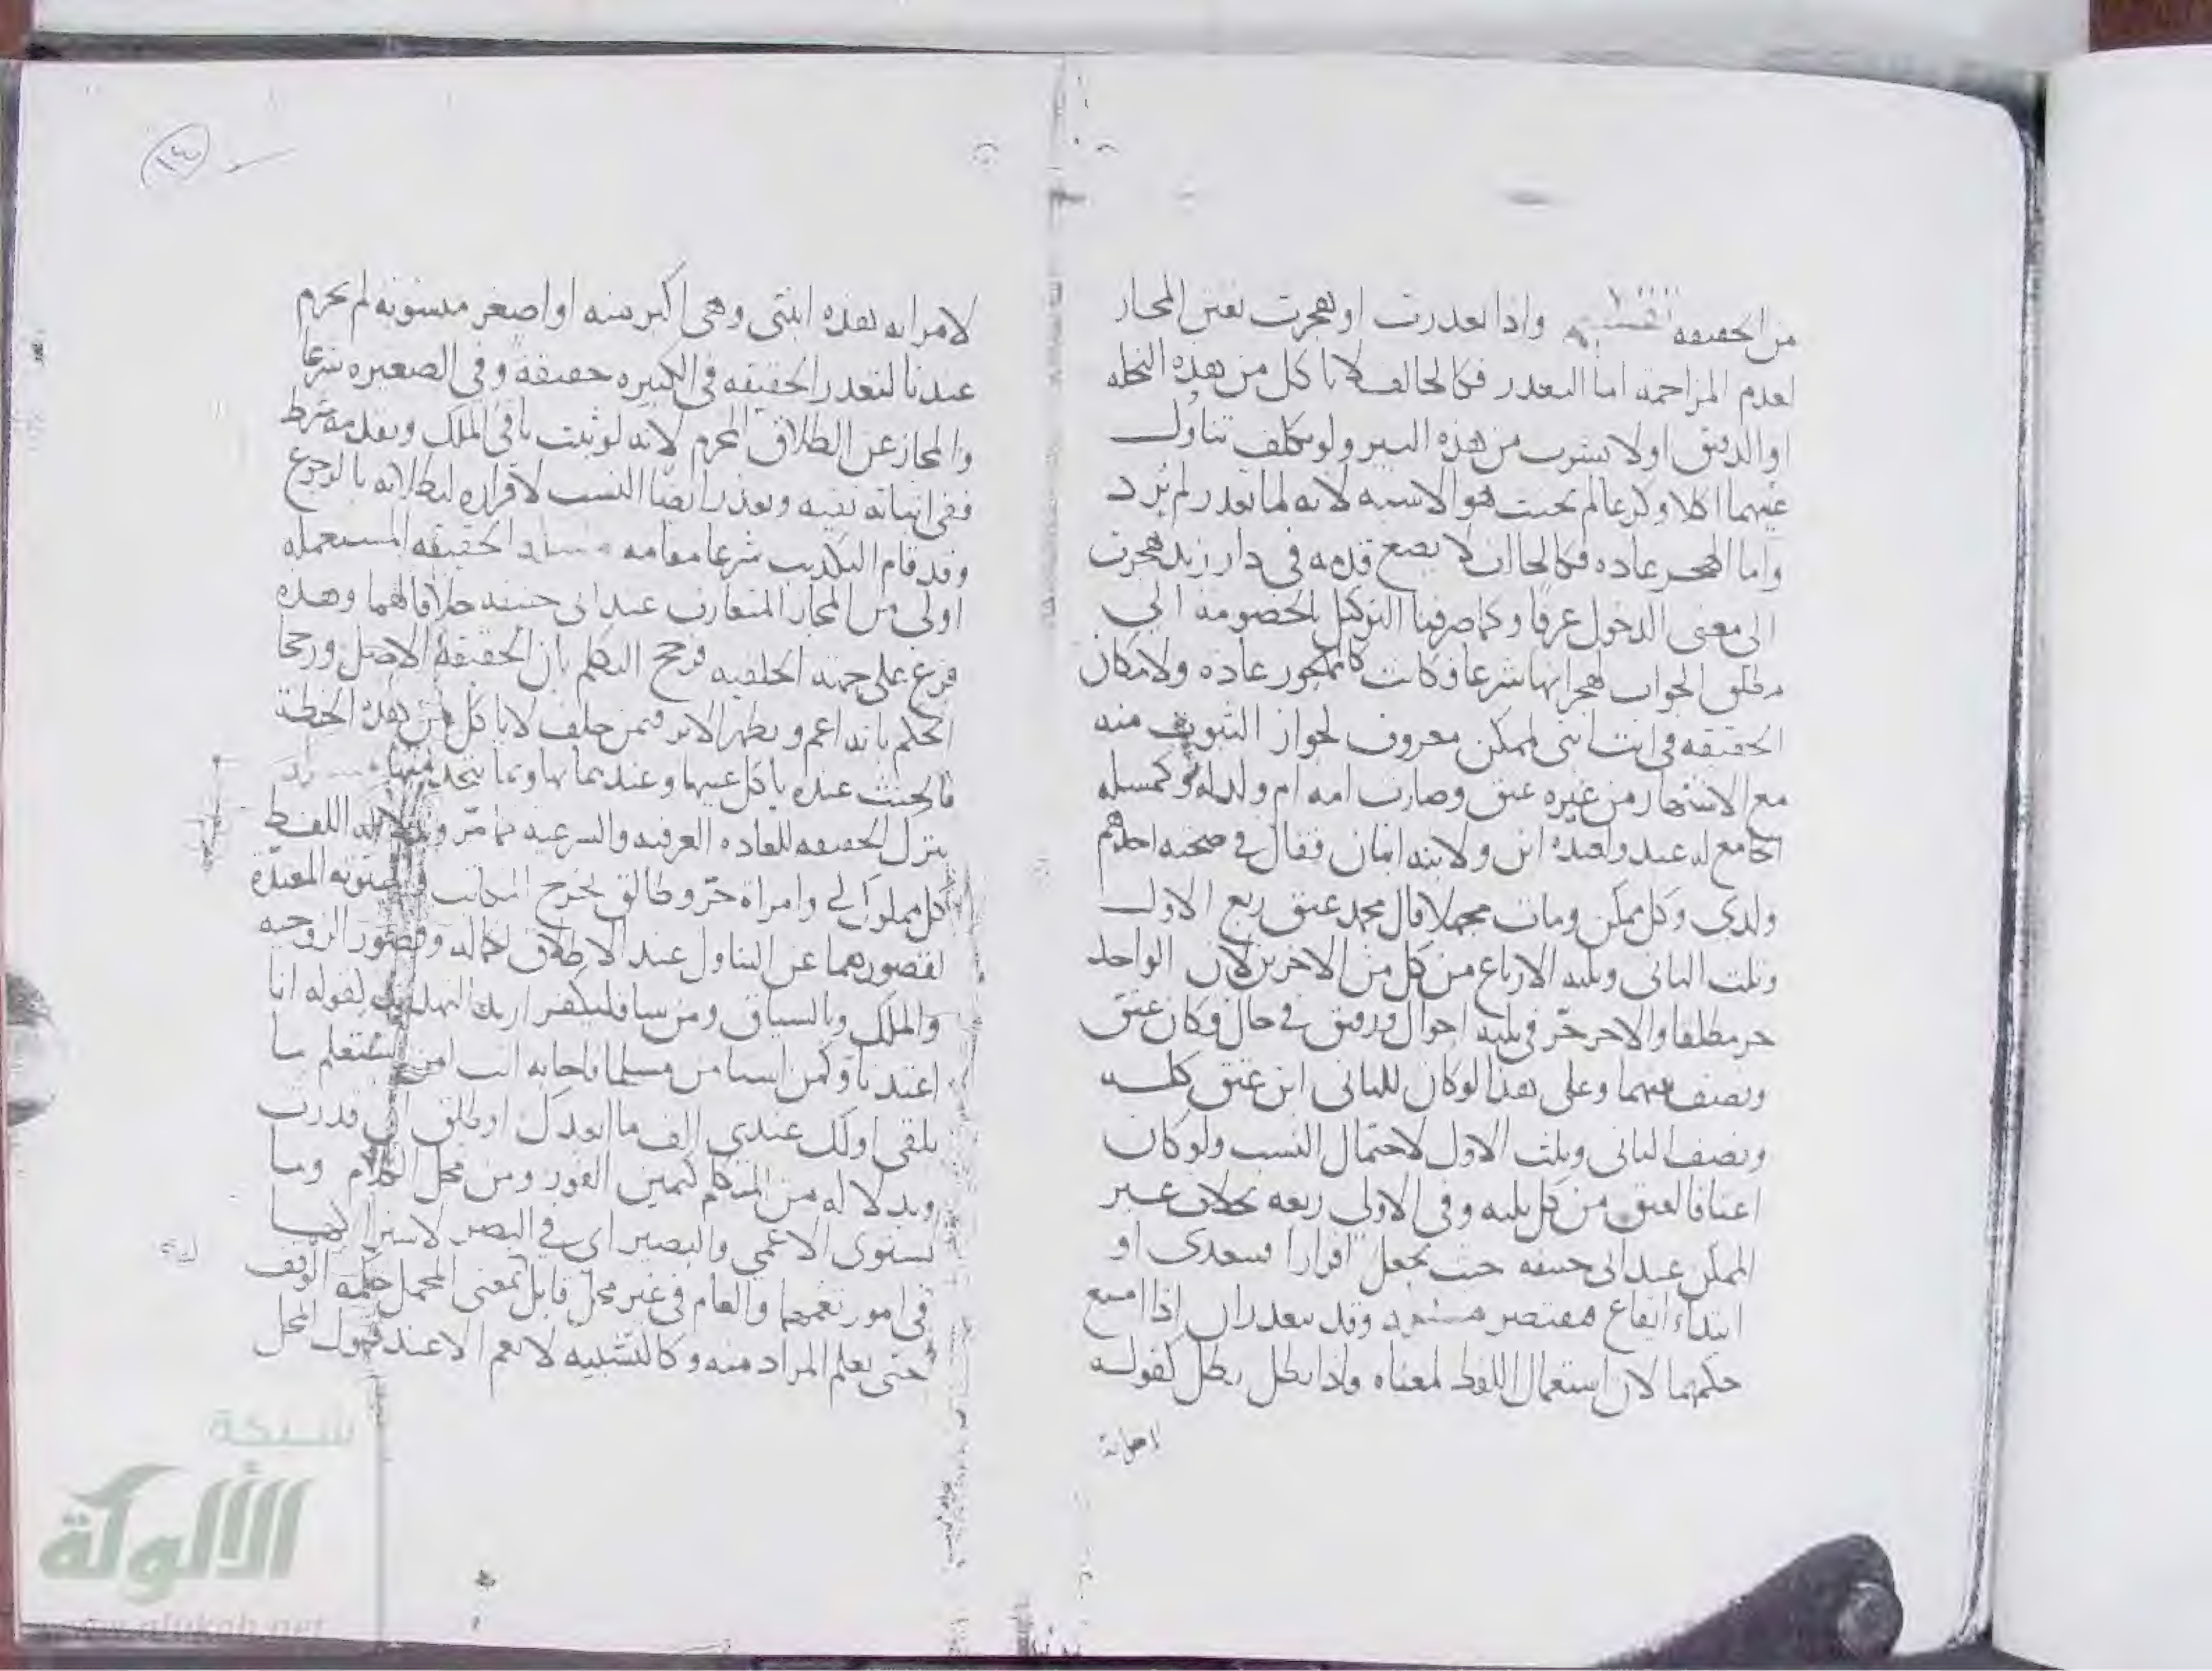 من الحقيقه تقسيم واذا تعذرت او هجرت تعين المجاز
لعدم المزاحمة اما التعذر فكالحالف لا ياكل من هذه النخله
او الدقيق او لا يشرب من هذه البير ولو تكلف تناول
عينهما اكلا وكرعا لم يحنث هو الاشبه لانه لما تعذر لم يُرد
واما الهجر عاده فكالحالف لا يضع قدمه في دار زيد هجرت
الى معنى الدخول عرفا وكما صرفنا التوكيل بالخصومة الى
مطلق الجواب لهجرانها شرعا فكانت كالمهجور عاده ولامكان
الحقيقه في انت ابني لممكن معروف لجواز الثبوت منه
مع الاشتهار من غيره عتق وصارت امه ام ولد له وكمسله
الجامع له عبد ولعبده ابن ولابنه ابنان فقال في صحته احدهم
ولدي وكل ممكن ومات مجهلا قال محمد عتق ربع الاول
وثلث الثاني وثلثه الارباع من كل من الاخرين لان الواحد
حر مطلقا والاخر حر في ثلثه احوال ورقيق في حال فكان عتق
ونصف بينهما وعلى هذا لو كان للثاني ابن عتق كله
ونصف الثاني وثلث الاول لاحتمال النسب ولو كان
اعتاقا لعتق من كل ثلثه وفي الاولى ربعه بخلاف غير
الممكن عند ابي حنيفه حيث يجعل اقرارا فيتعدى او
ابتداء ايقاع فيقتصر وقد يتعذران اذا امتنع
حكمهما لان استعمال اللفظ لمعناه واذا بطل بطل كقوله
لامراته
١٤
لامراته هذه ابنتي وهي اكبر منه او اصغر منسوبه لم تحرم
عندنا لتعذر الحقيقه في الكبيره حقيقة وفي الصغيره شرعا
والمجاز عن الطلاق المحرم لانه لو ثبت نافى الملك وتقدمه شرط
ففي اثباته نفيه وتعذر ايضا النسب لاقراره لبطلانه بالرجوع
وقد قام التكذيب شرعا مقامه الحقيقه المستعمله
اولى من المجاز المتعارف عند ابي حنيفه خلافا لهما وهذه
فرع على جهة الخلفيه فرجح التكلم بان الحقيقة الاصل ورجحا
الحكم بانه اعم ويظهر الاثر فيمن حلف لا ياكل من هذه الحنطة
فالحنث عنده باكل عينها وعندهما بها وبما يتخذ منها
يترك الحقيقه للعاده العرفيه والشرعيه كما مر وبدلاله اللفظ
كل مملوك لي وامراة حر وطالق يخرج المكاتب والمبتوته المعتدة
لقصورهما عن التناول عند الاطلاق لكماله وقصور الزوجيه
والملك وبالسياق ومن شا فليكفر اريد التهديد لقوله انا
اعتدنا وكمن استامن مسلما فاجابه انت امن ستعلم ما
تلقى اولك عندي الف ما ابعدك او طلق ان قدرت
وبدلاله من المتكلم كيمين الفور ومن محل الكلام وما
يستوى الاعمى والبصير اي في البصر
في امور نعمها والعام في غير محل قابل بمعنى المجمل حكمه الوقف
حتى يعلم المراد منه وكالتشبيه لا يعم الا عند قبول المحل
شبكة
الألوكة
www.alukah.net